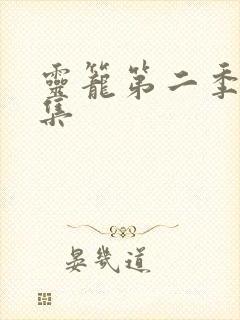 靈籠第二季
集
晏幾道